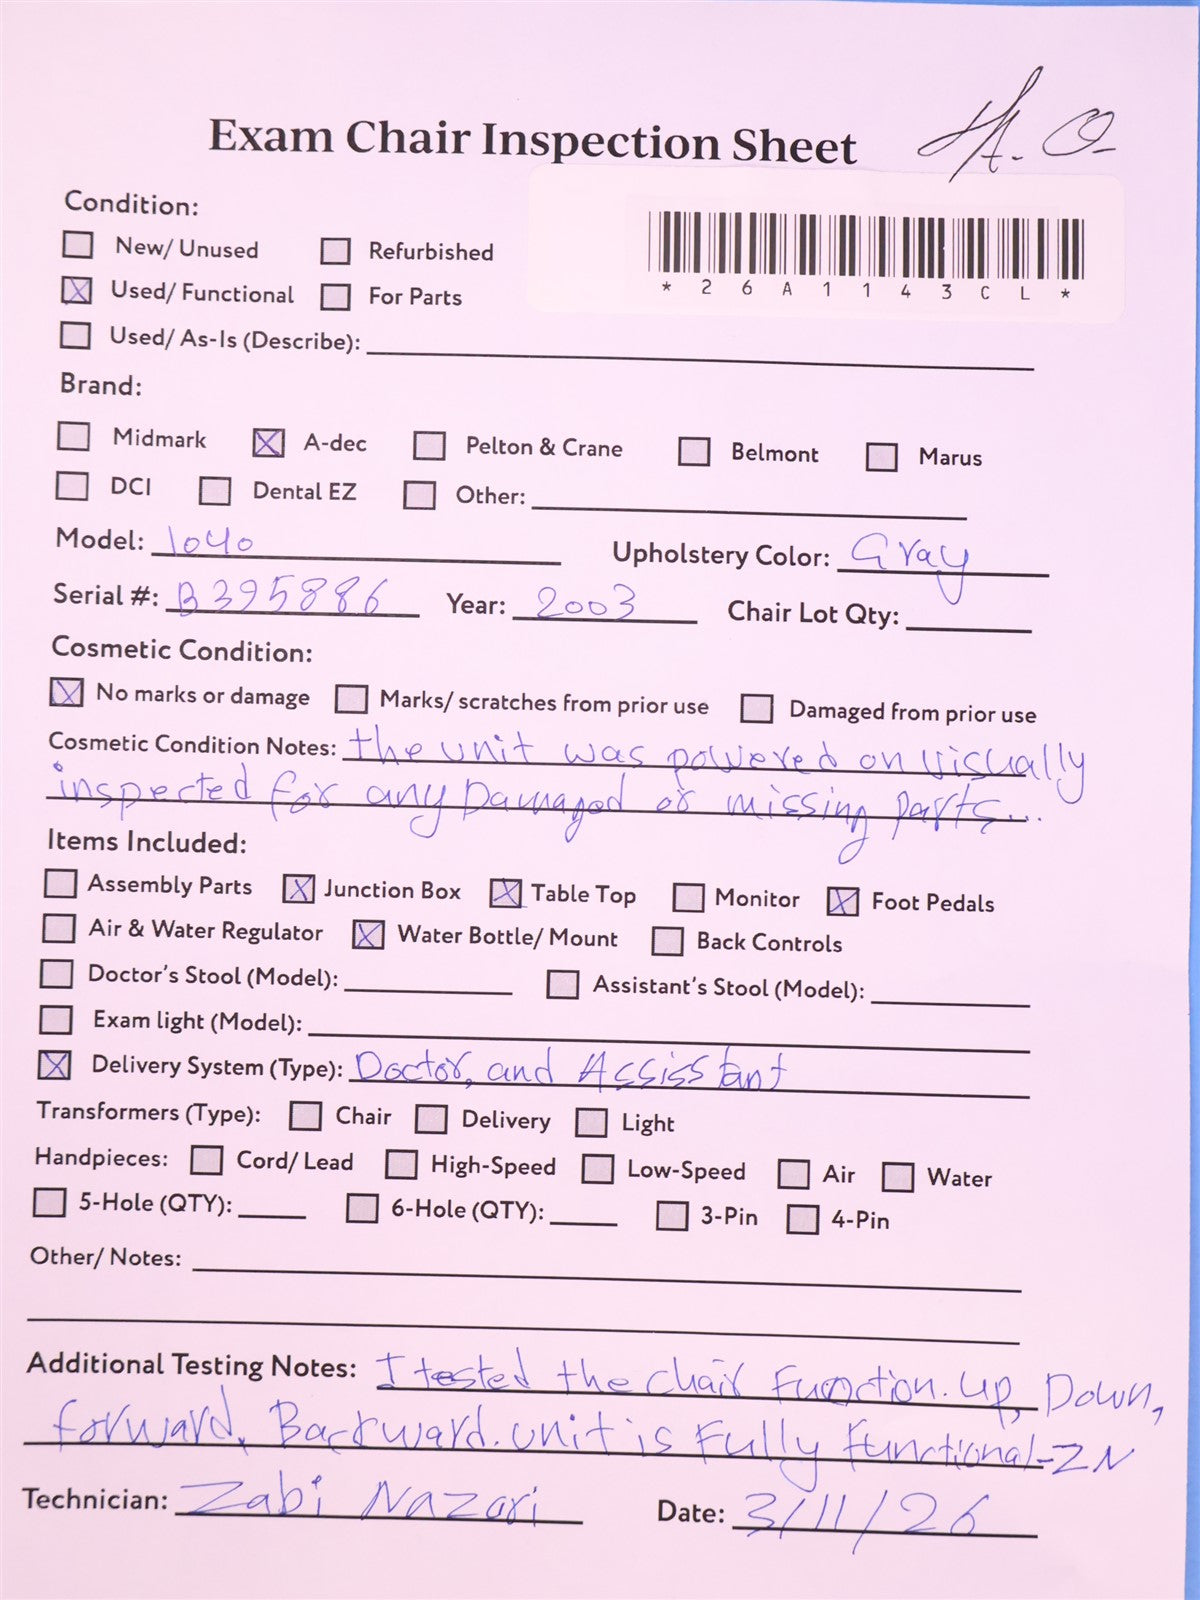 Exam Chair Inspection Sheet
Condition:
New/ Unused Refurbished
Used/ Functional For Parts
*26A1143CL*
Used/ As-Is (Describe):
Brand:
Midmark A-dec Pelton & Crane Belmont Marus
DCI Dental EZ Other:
Model: 1040 Upholstery Color: Gray
Serial #: B395886 Year: 2003 Chair Lot Qty:
Cosmetic Condition:
No marks or damage Marks/ scratches from prior use Damaged from prior use
Cosmetic Condition Notes: the unit was powered on visually
inspected for any Damaged or missing parts...
Items Included:
Assembly Parts Junction Box Table Top Monitor Foot Pedals
Air & Water Regulator Water Bottle/ Mount Back Controls
Doctor's Stool (Model): Assistant's Stool (Model):
Exam light (Model):
Delivery System (Type): Doctor, and Assisstant
Transformers (Type): Chair Delivery Light
Handpieces: Cord/ Lead High-Speed Low-Speed Air Water
5-Hole (QTY): 6-Hole (QTY): 3-Pin 4-Pin
Other/ Notes:
Additional Testing Notes: I tested the chair Function. Up, Down,
forward, Backward. unit is Fully Functional-ZN
Technician: Zabi Nazari Date: 3/11/26